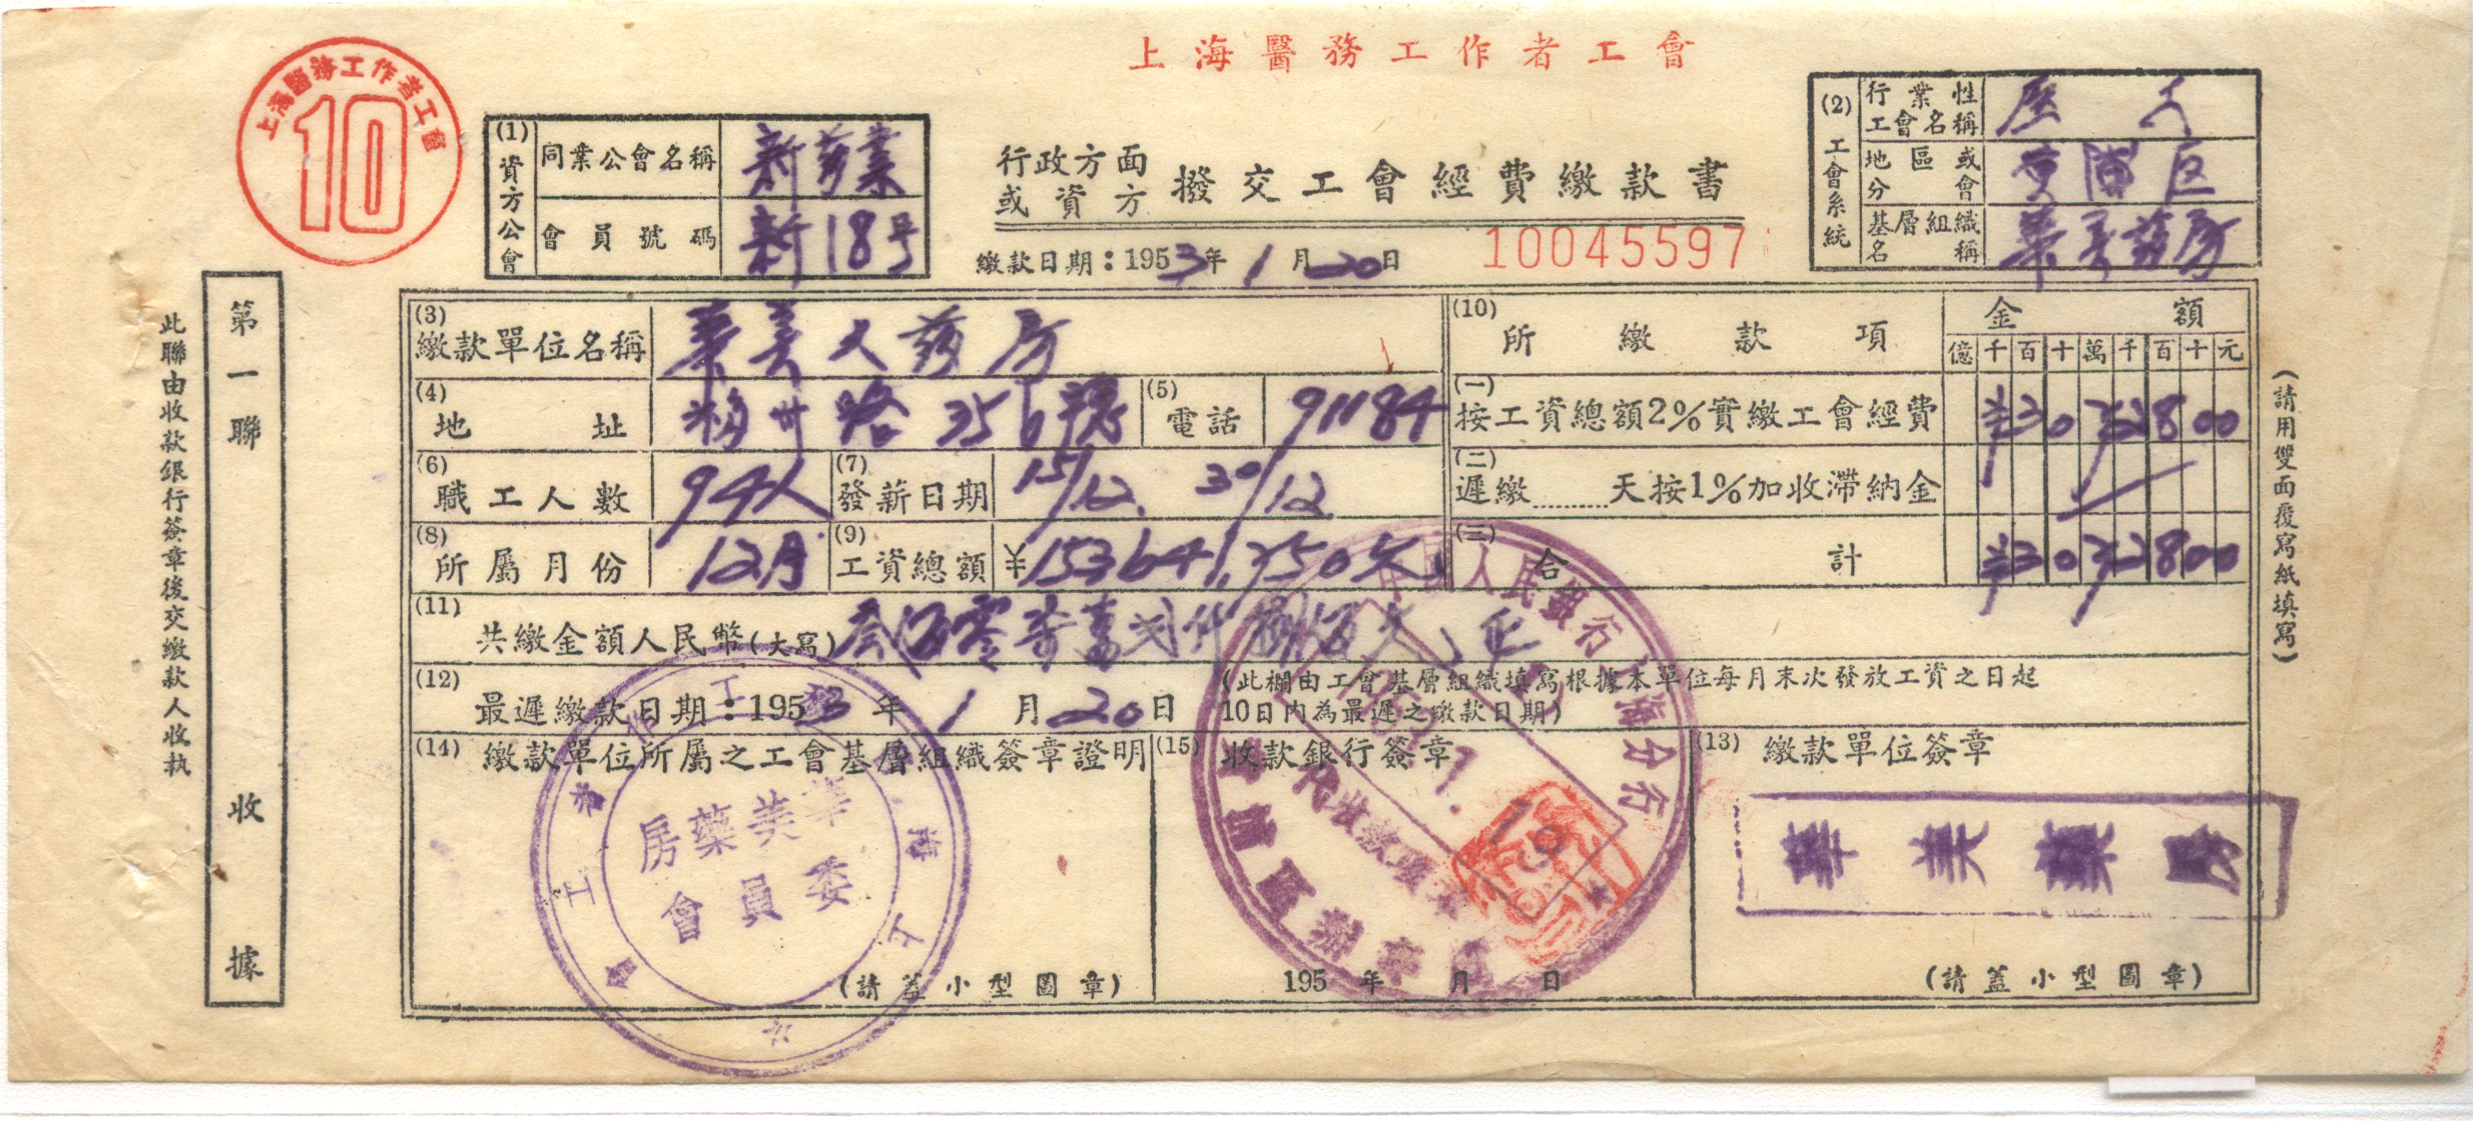 上海醫務工作者工會
上海醫務工作者工會
10
(1) 資方公會
同業公會名稱 新药業
會員號碼 新18号
行政方面或資方 撥交工會經費繳款書
繳款日期：1953年1月20日
10045597
(2) 工會系統
行業性工會名稱 医工
地區或分會 黄浦区
基層組織名稱 華美药房
第一聯 收據
此聯由收款銀行簽章後交繳款人收執
(請用雙面覆寫紙填寫)
(3) 繳款單位名稱 華美大药房
(4) 地址 福州路356號
(5) 電話 91184
(6) 職工人數 94人
(7) 發薪日期 15/12. 30/12.
(8) 所屬月份 12月
(9) 工資總額 ¥153641,750元
(10) 所繳款項 金額
億千百十萬千百十元
(一) 按工資總額2%實繳工會經費 ¥3072800
(二) 遲繳........天按1%加收滯納金
(三) 合計 ¥3072800
(11) 共繳金額人民幣(大寫) 叁佰零柒萬弍仟捌佰元正
(12) 最遲繳款日期：1953年1月20日
(此欄由工會基層組織填寫根據本單位每月末次發放工資之日起
10日內為最遲之繳款日期)
(14) 繳款單位所屬之工會基層組織簽章證明
華美藥房
委員會
(請蓋小型圖章)
(15) 收款銀行簽章
中國人民銀行上海分行
代收款項
195 年 月 日
(13) 繳款單位簽章
華美藥房
(請蓋小型圖章)